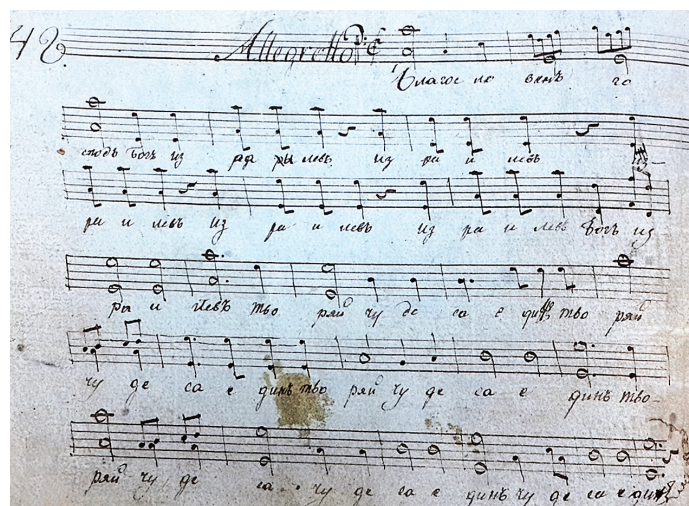 42. Allegretto
Благос ло венъ го
сподь богъ из ра ры левъ из ра и левъ из
ра и левъ из ра и левъ из ра и левъ богъ из
ра и левъ тво ряй чу де са е динъ тво ряй
чу де са е динъ тво ряй чу де са е динъ тво
ряй чу де са чу де са е динъ чу де са е динъ